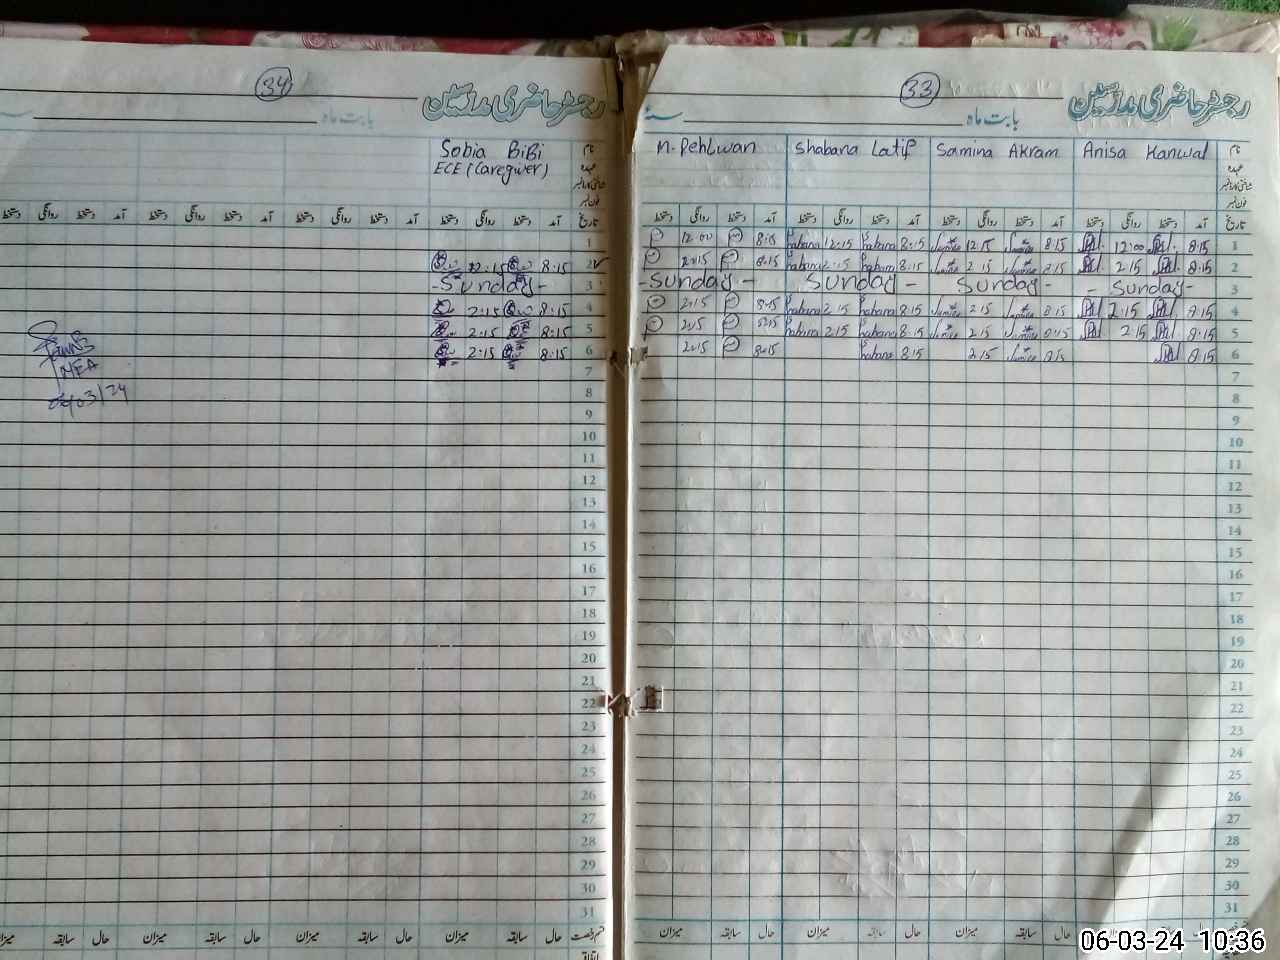 34
رجسٹر حاضری مدرسین
بابت ماہ سنہ
Sobia BiBi نام
ECE (Caregiver) عہدہ
تاریخ آمد دستخط روانگی دستخط آمد دستخط روانگی دستخط آمد دستخط روانگی دستخط آمد دستخط روانگی دستخط
1
12:15 8:15 2
-Sunday- 3
2:15 8:15 4
2:15 8:15 5
2:15 8:15 6
7
8
9
10
11
12
13
14
15
16
17
18
19
20
21
22
23
24
25
26
27
28
29
30
31
قسم رخصت حال سابقہ میزان حال سابقہ میزان حال سابقہ میزان حال سابقہ میزان
MEA
06/03/24
33
رجسٹر حاضری مدرسین
بابت ماہ سنہ
M. Pehlwan Shabana Latif Samina Akram Anisa Kanwal نام
عہدہ
تاریخ آمد دستخط روانگی دستخط آمد دستخط روانگی دستخط آمد دستخط روانگی دستخط آمد دستخط روانگی دستخط
12:00 8:15 Shabana 12:15 Shabana 8:15 12:15 8:15 12:00 8:15 1
2:15 8:15 Shabana 2:15 Shabana 8:15 2:15 8:15 2:15 8:15 2
-Sunday- Sunday- Sunday- -Sunday- 3
2:15 8:15 Shabana 2:15 Shabana 8:15 2:15 8:15 2:15 8:15 4
2:15 8:15 Shabana 2:15 Shabana 8:15 2:15 8:15 2:15 8:15 5
2:15 8:15 Shabana 8:15 2:15 8:15 8:15 6
7
8
9
10
11
12
13
14
15
16
17
18
19
20
21
22
23
24
25
26
27
28
29
30
31
حال سابقہ میزان حال سابقہ میزان حال سابقہ میزان حال سابقہ میزان
06-03-24 10:36